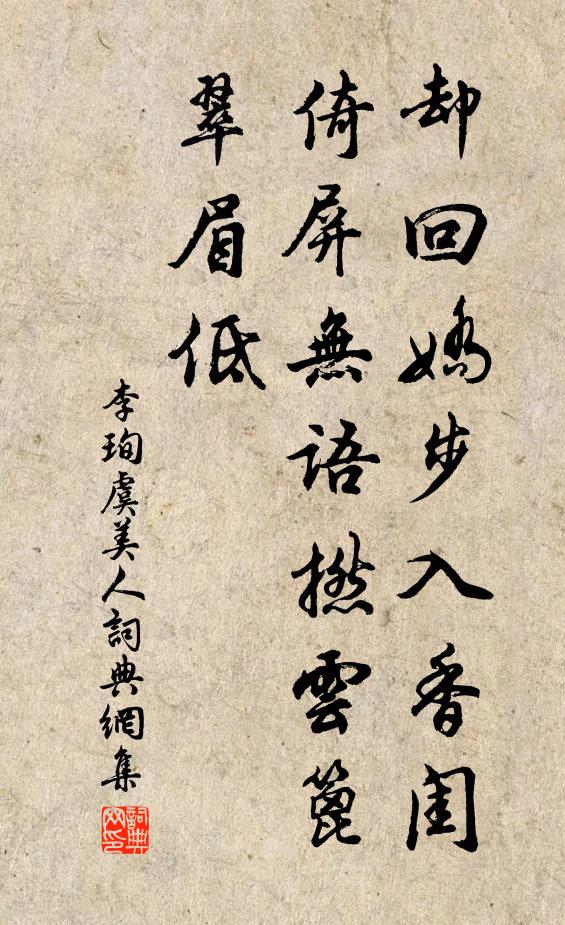 却回嬌步入香閨
倚屏無語撚雲篦
翠眉低
李珣虞美人詞典網集
詞典网印